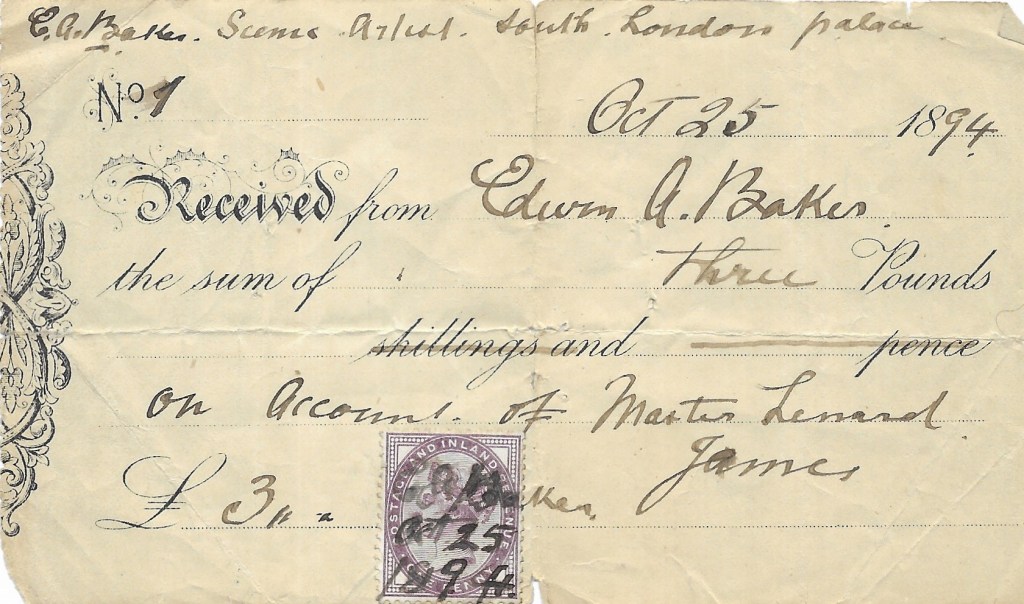 E. A. Baker. Scenic Artist. South London palace
No. 1
Oct 25 1894
Received from Edwin A. Baker.
the sum of Three Pounds
shillings and pence
on Account of Master Lenard
James
£ 3 " -
POSTAGE AND INLAND REVENUE
E. A. Baker.
Oct 25
1894
ONE PENNY